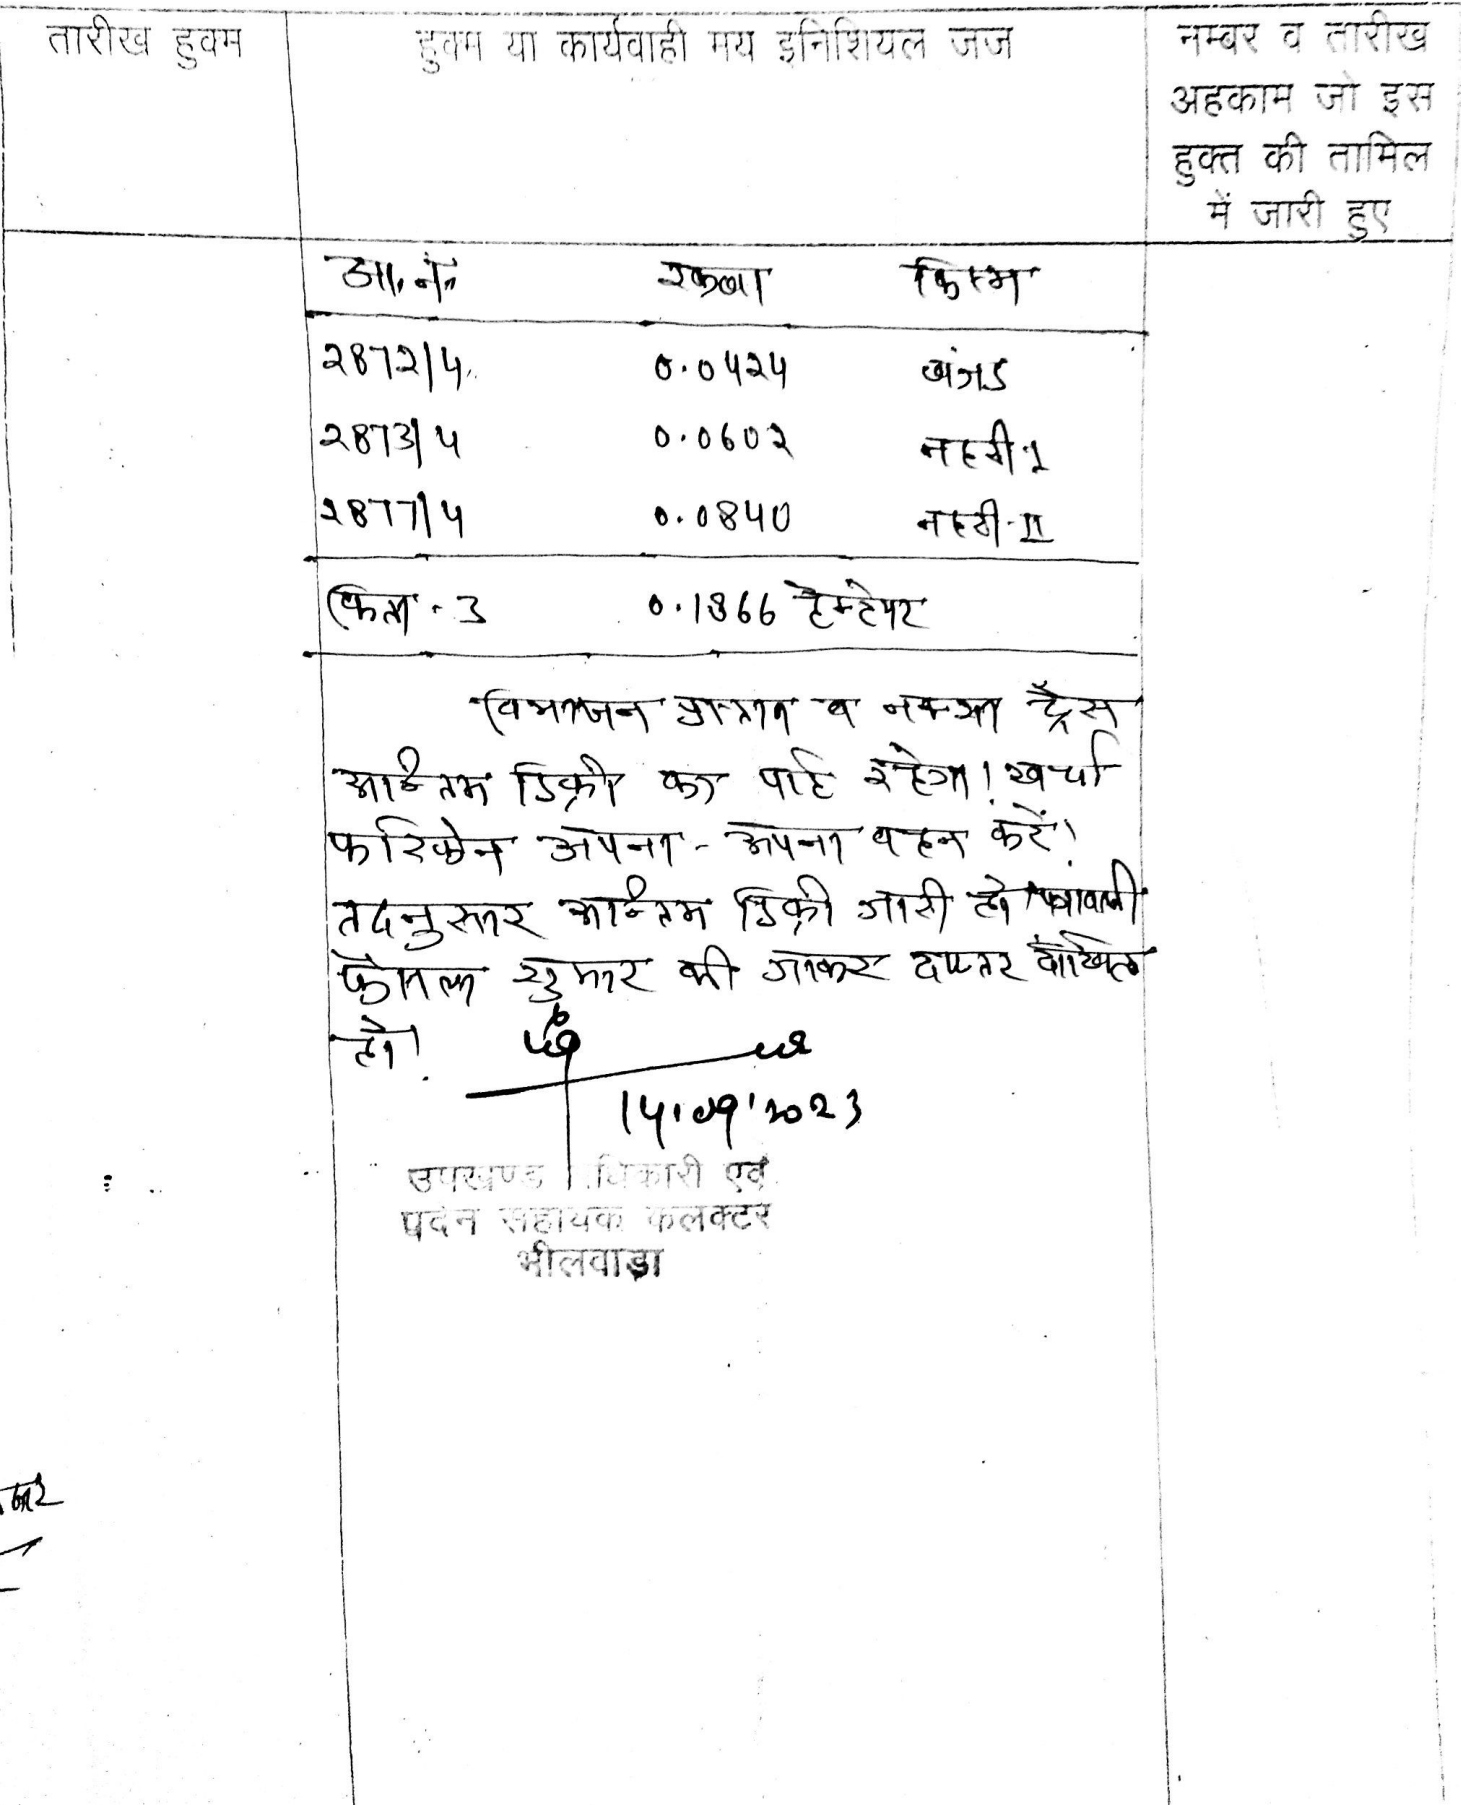 तारीख हुक्म
हुक्म या कार्यवाही मय इनिशियल जज
नम्बर व तारीख
अहकाम जो इस
हुक्त की तामिल
में जारी हुए
आ.नं. रकबा किस्म
2872/4 0.0424 बंजड
2873/4 0.0602 नहरी-I
2877/4 0.0840 नहरी-II
किता-3 0.1866 हैक्टेयर
विभाजन प्रस्ताव व नक्शा ट्रैस
अन्तिम डिक्री का पार्ट रहेगा। खर्चा
फरिकेन अपना-अपना वहन करें।
तदनुसार अन्तिम डिक्री जारी हो। पत्रावली
फैसल शुमार की जाकर दफ्तर दाखिल
हो।
14.09.2023
उपखण्ड अधिकारी एवं
पदेन सहायक कलक्टर
भीलवाड़ा